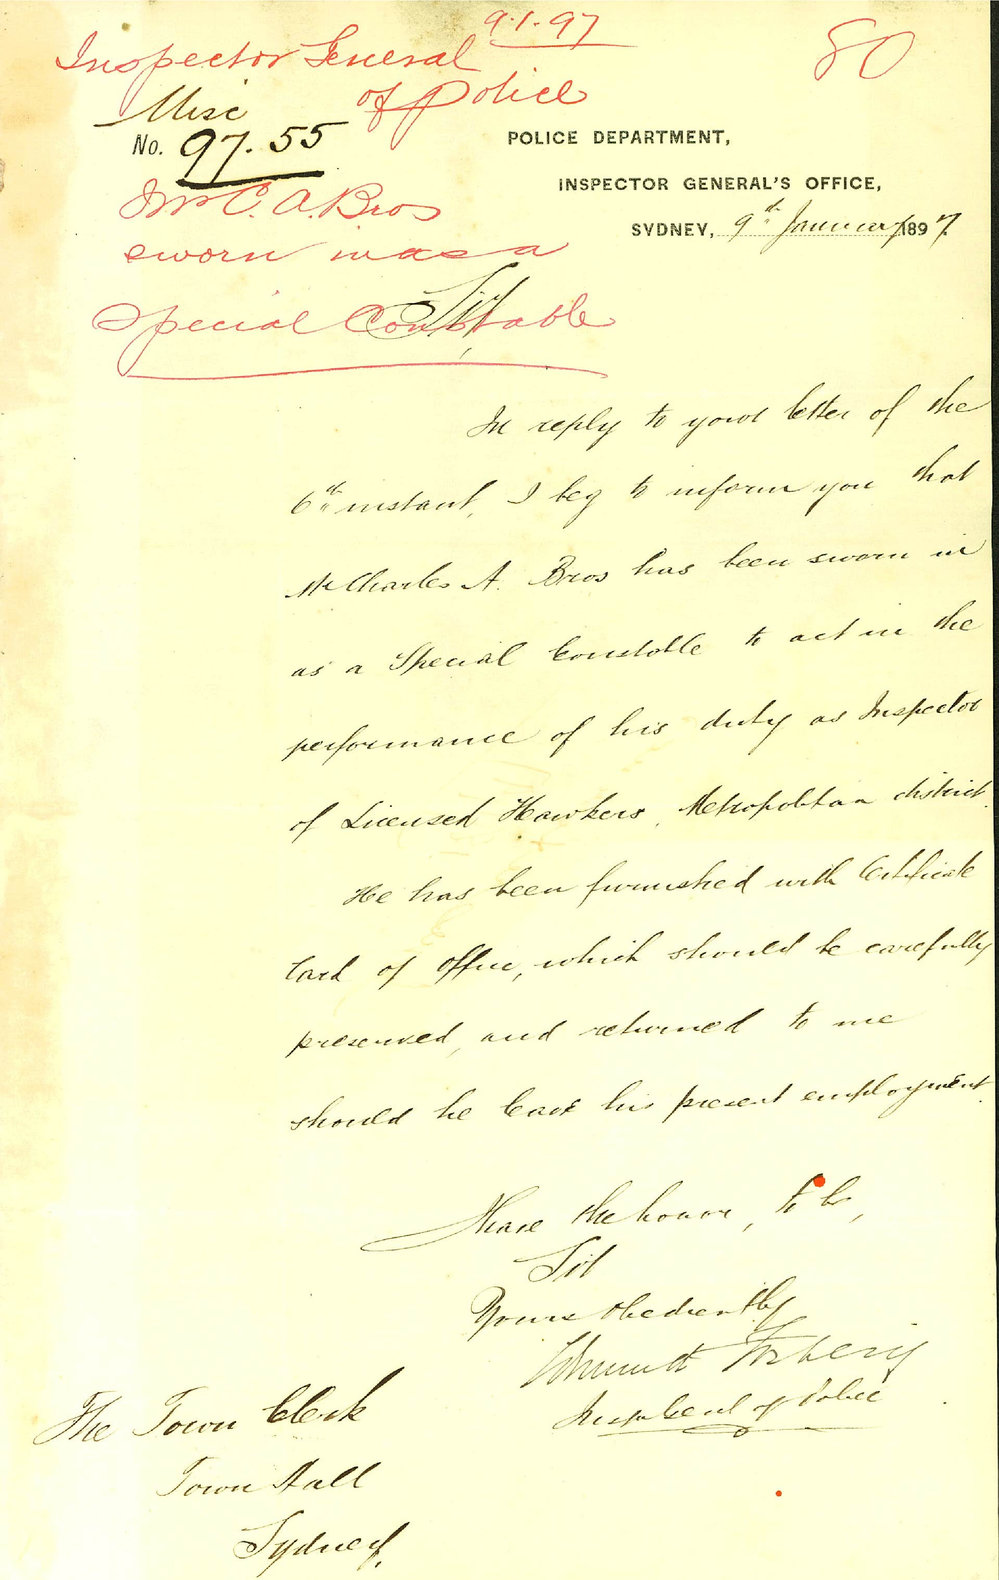 9.1.97
80
Inspector General
of Police
Misc
No. 97.55
Mr C. A. Bros
sworn in as a
Special Constable
POLICE DEPARTMENT,
INSPECTOR GENERAL'S OFFICE,
SYDNEY, 9th January 1897.
Sir,
In reply to your letter of the
6th instant, I beg to inform you that
Mr Charles A. Bros has been sworn in
as a Special Constable to act in the
performance of his duty as Inspector
of Licensed Hawkers, Metropolitan district.
He has been furnished with Certificate
Card of Office, which should be carefully
preserved, and returned to me
should he leave his present employment.
I have the honor, to be,
Sir
Yours obediently
Edmund Fosbery
Insp Genl of Police
The Town Clerk
Town Hall
Sydney.